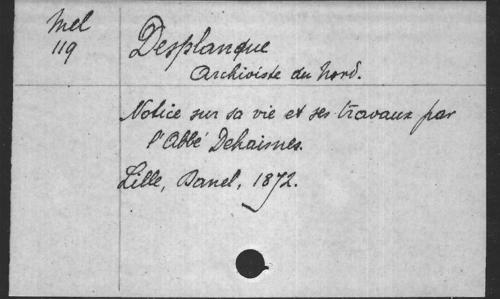 Mel
119
Desplanque
Archiviste du Nord.
Notice sur sa vie et ses travaux par
l'Abbé Dehaisnes.
Lille, Danel, 1872.